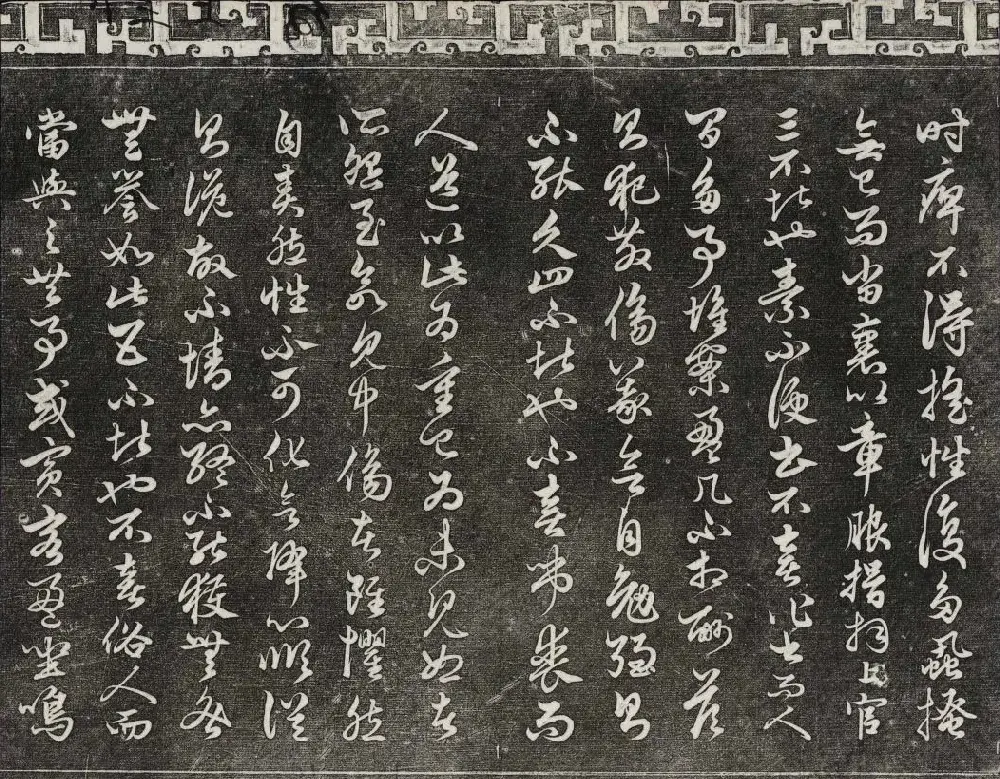 時痺不得搖性復多蝨搔
無已而當裹以章服揖拜上官
三不堪也素不便書不喜作書而人
間多事堆案盈几不相酬答
則犯教傷義欲自勉強則
不能久四不堪也不喜弔喪而
人道以此為重已為未見恕者
所怨至欲見中傷者雖懼然
自責然性不可化欲降心順從
則詭故不情亦終不能獲無咎
無譽如此五不堪也不喜俗人而
當與之共事或賓客盈坐鳴